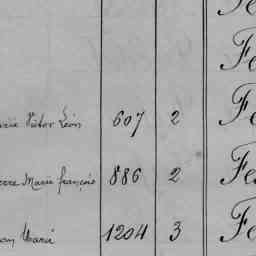 Fe
Fe
Victor Léon 607 2 Fe
Marie françois 886 2 Fe
Marie 1204 3 Fe